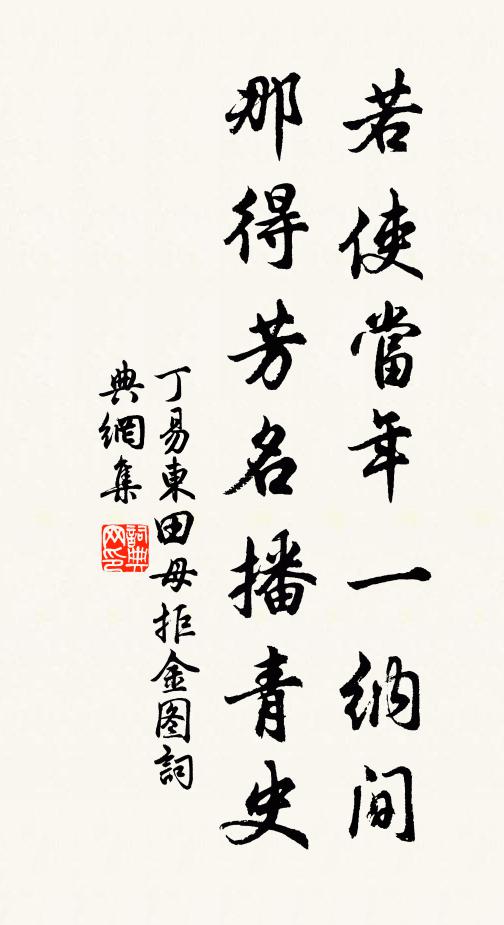 若使當年一納间
那得芳名播青史
丁易東田母拒金图詞
典網集
詞典
网印